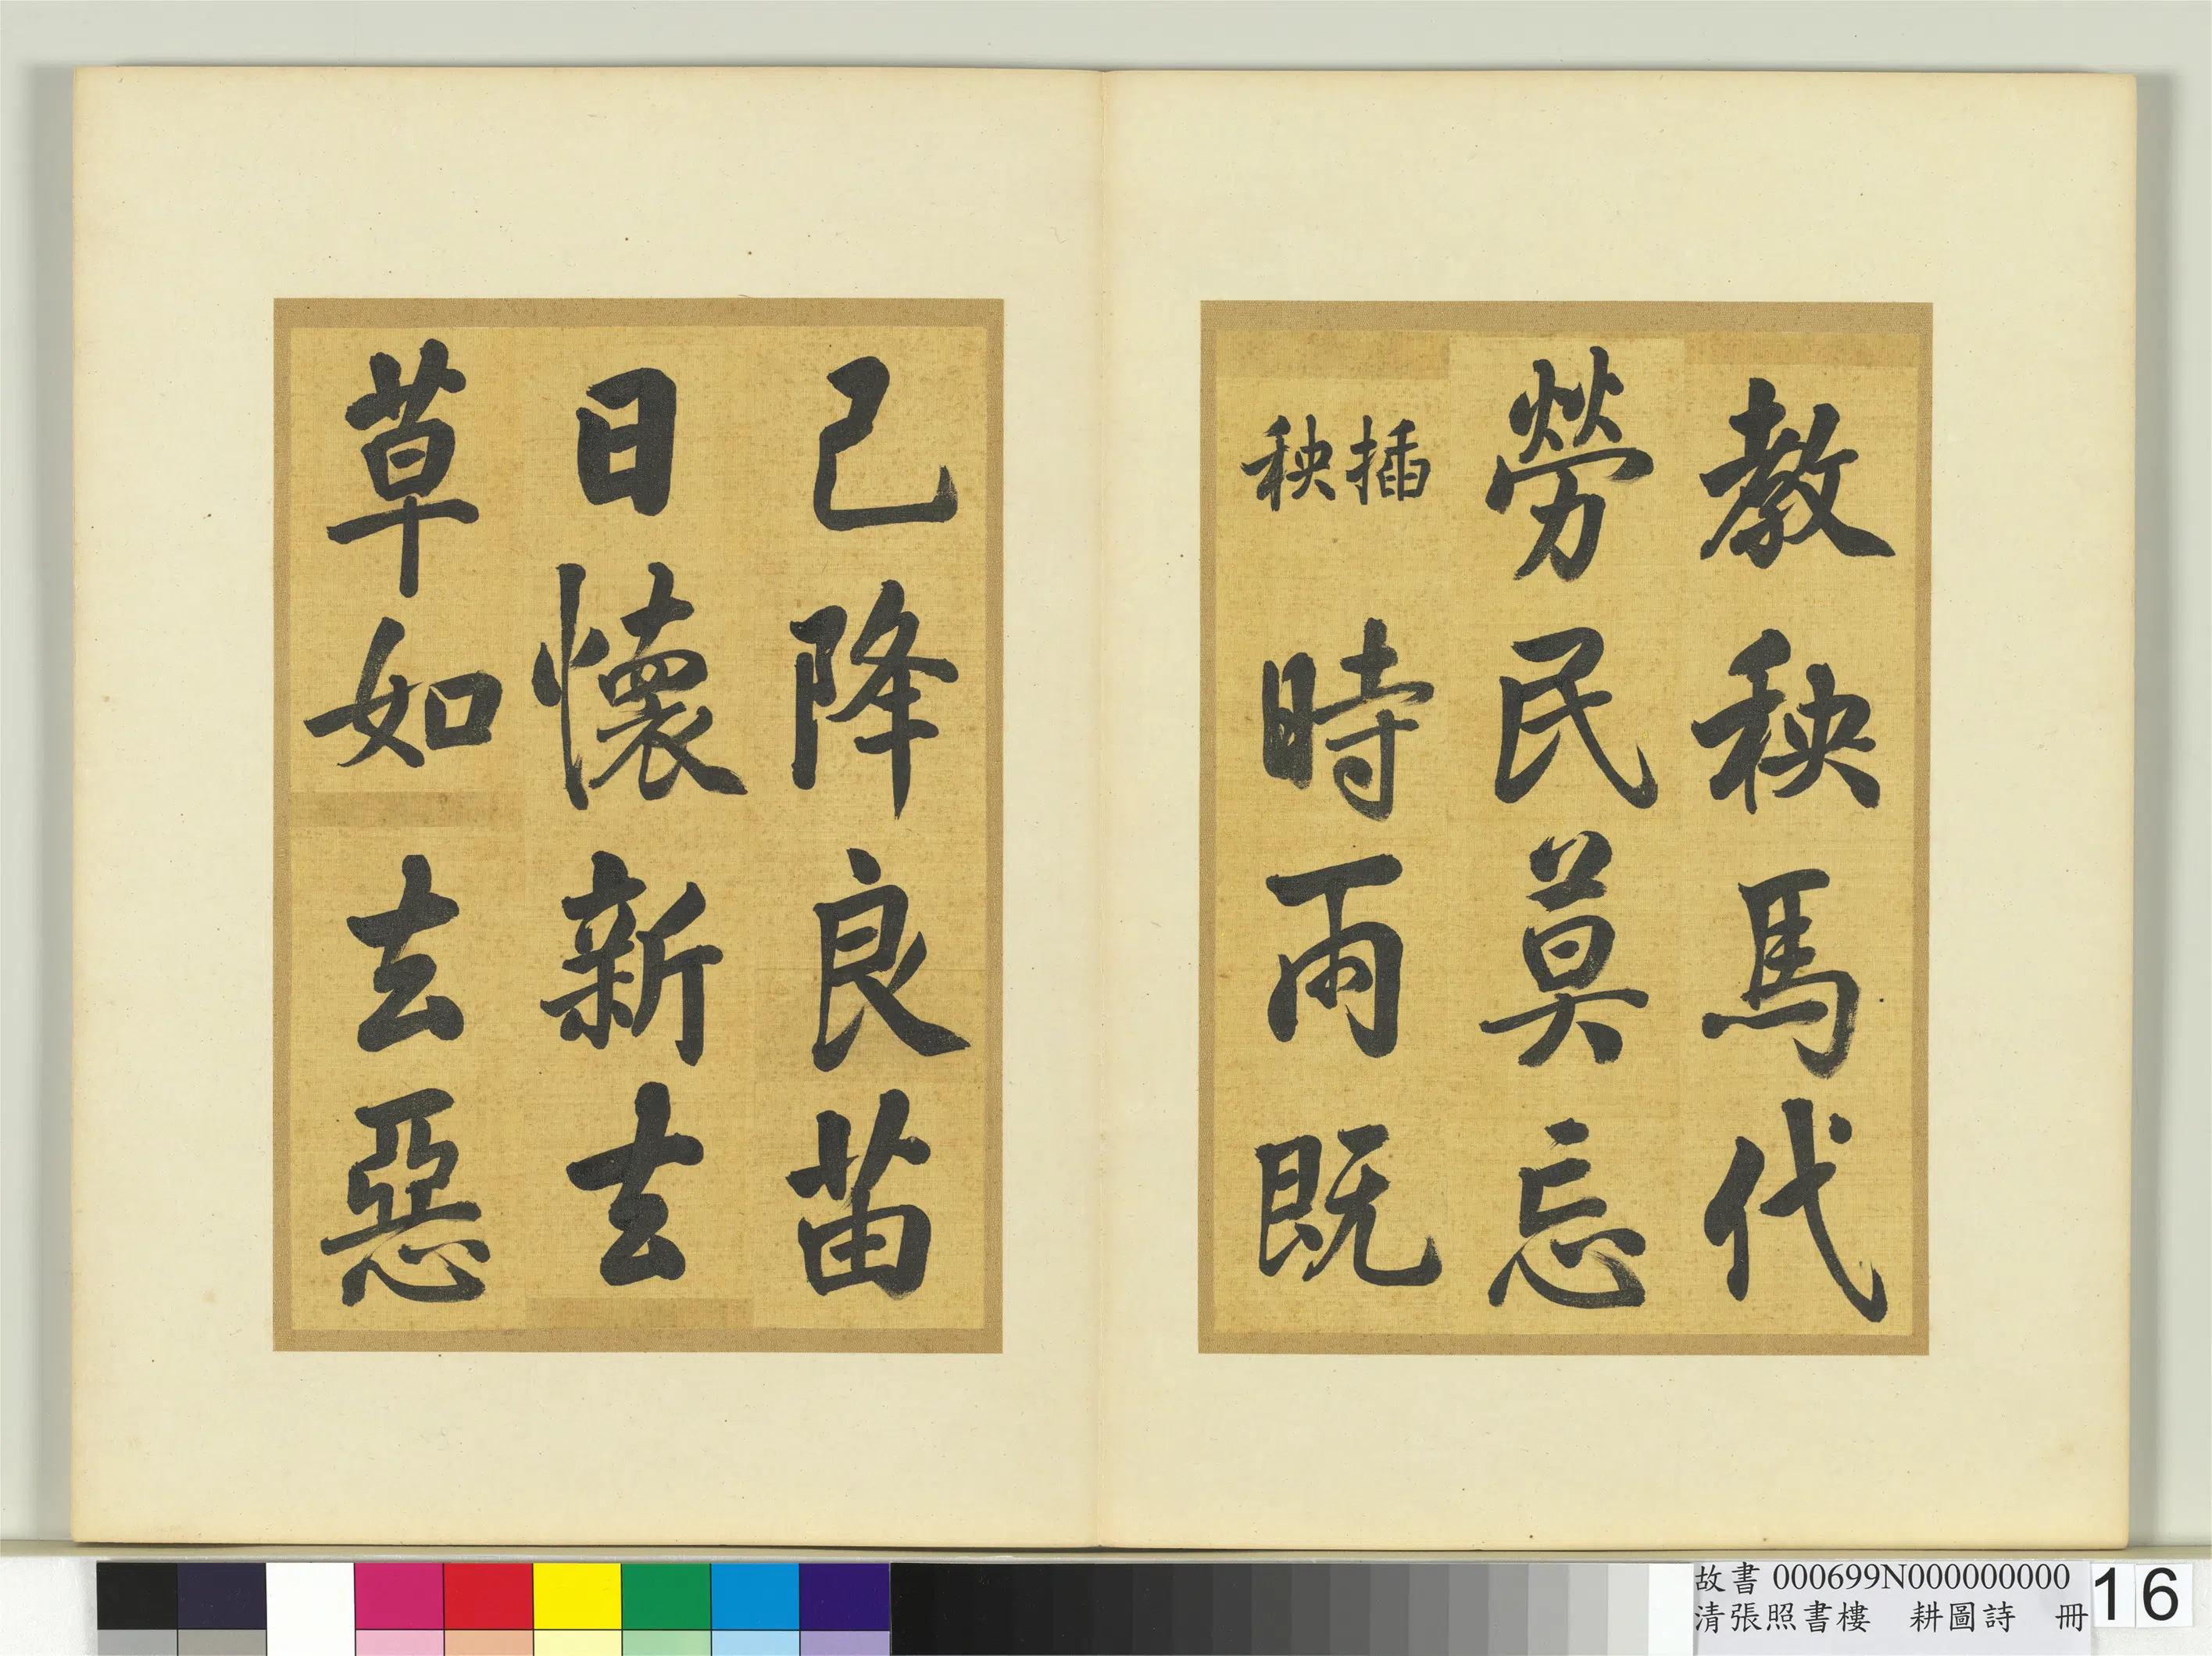 教秧馬代
勞民莫忘
插秧時雨既
已降良苗
日懷新去
草如去惡
故書 000699N000000000
清張照書樓 耕圖詩 冊
16